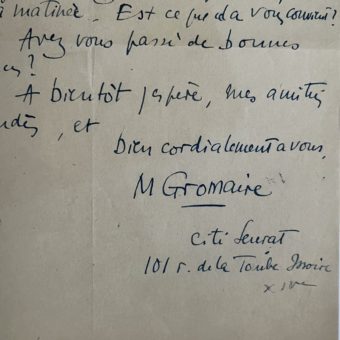 à matinée. Est ce que cela vous convient?
Avez vous passé de bonnes
es?
A bientôt j'espère, mes amitiés
, et
bien cordialement a vous,
M Gromaire
Citi Seurat
101 r. de la Tombe Issoire
XIVe